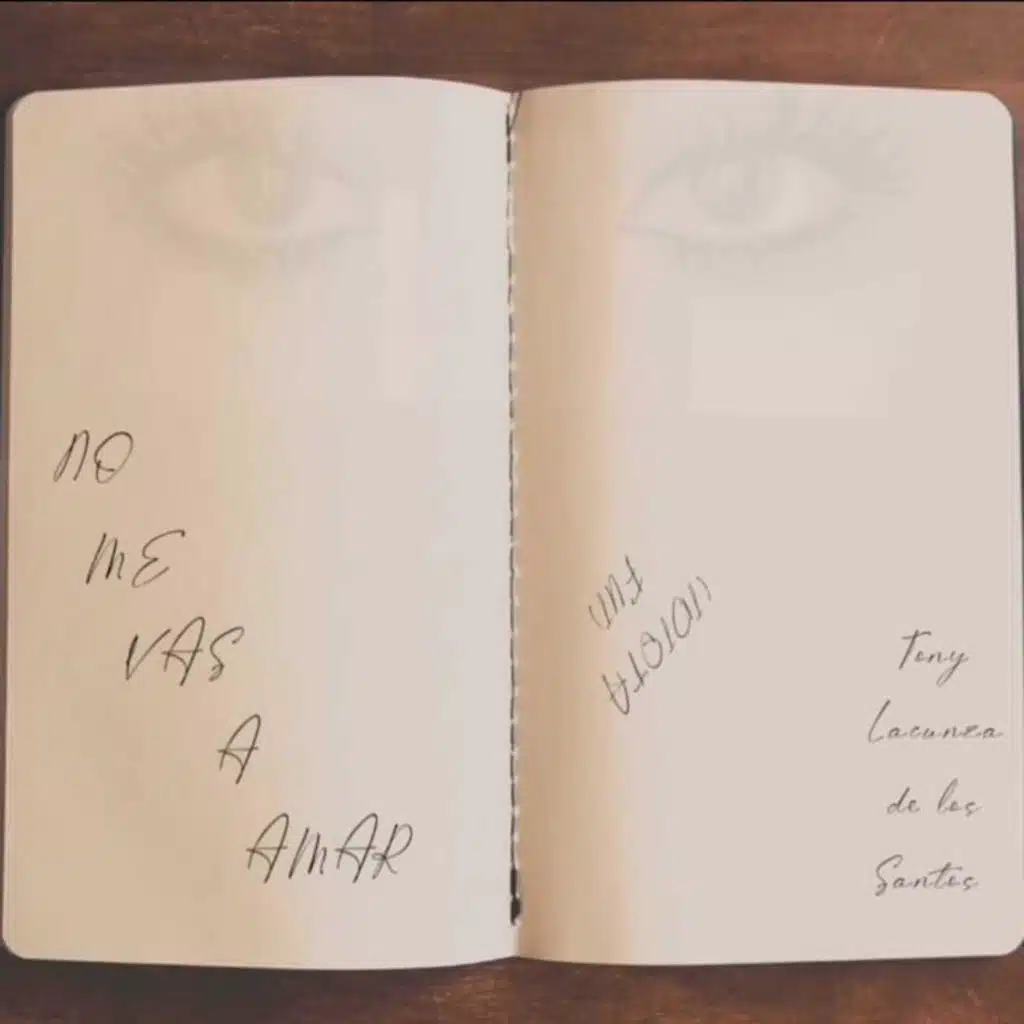 NO
ME
VAS
A
AMAR
IDIOTA
Tony
Lacunza
de los
Santos